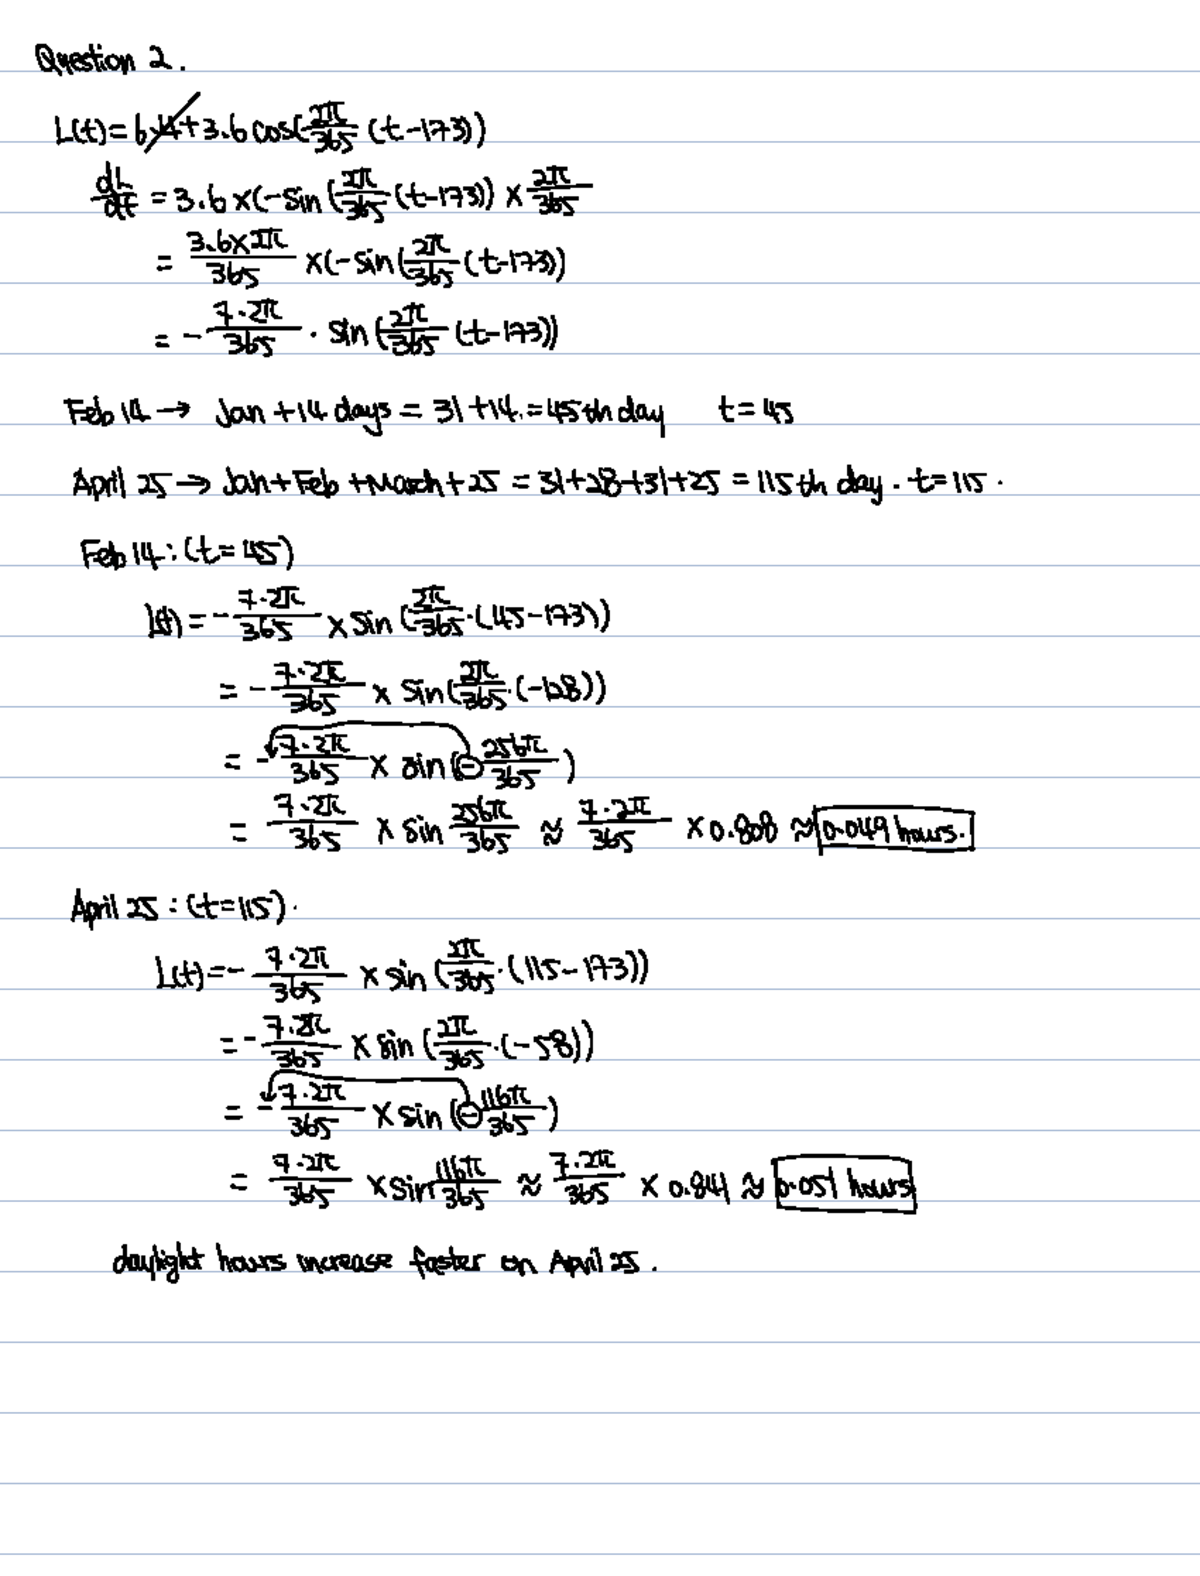 Question 2.
L(t)=6.4+3.6cos(2π/365 (t-173))
dL/dt = 3.6×(-sin(2π/365 (t-173)) × 2π/365
= 3.6×2π/365 ×(-sin(2π/365 (t-173))
= - 7.2π/365 · sin(2π/365 (t-173))
Feb 14 → Jan + 14 days = 31+14 = 45th day t=45
April 25 → Jan+Feb+March+25 = 31+28+31+25 = 115th day. t=115.
Feb 14: (t=45)
L(t) = - 7.2π/365 × sin(2π/365 · (45-173))
= - 7.2π/365 × sin(2π/365 · (-128))
= - 7.2π/365 × sin(- 256π/365)
= 7.2π/365 × sin 256π/365 ≈ 7.2π/365 × 0.808 ≈ 0.049 hours.
April 25: (t=115).
L(t) = - 7.2π/365 × sin(2π/365 · (115-173))
= - 7.2π/365 × sin(2π/365 · (-58))
= - 7.2π/365 × sin(- 116π/365)
= 7.2π/365 × sin 116π/365 ≈ 7.2π/365 × 0.841 ≈ 0.051 hours
daylight hours increase faster on April 25.